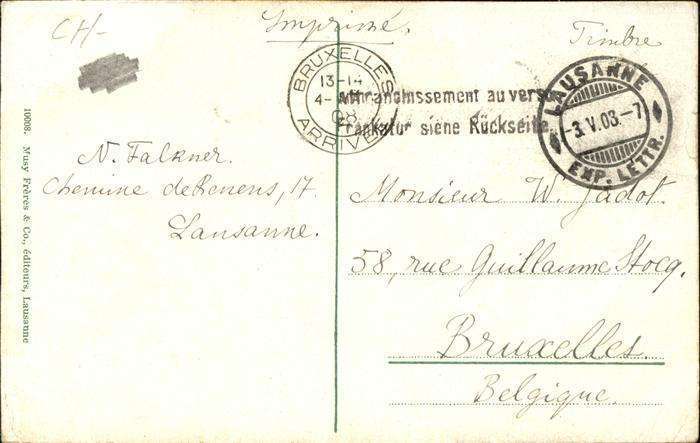 CH-
Imprimé.
Timbre
BRUXELLES
13-14
08
ARRIVE
LAUSANNE
-3.V.08.-7
EXP. LETTR.
Affranchissement au verso
Frankatur siehe Rückseite
N. Falkner.
Chemine de Renens, 17.
Lausanne.
Monsieur W. Jadot.
58, rue Guillaume Stocq.
Bruxelles.
Belgique.
10008. Musy Frères & Co., éditeurs, Lausanne